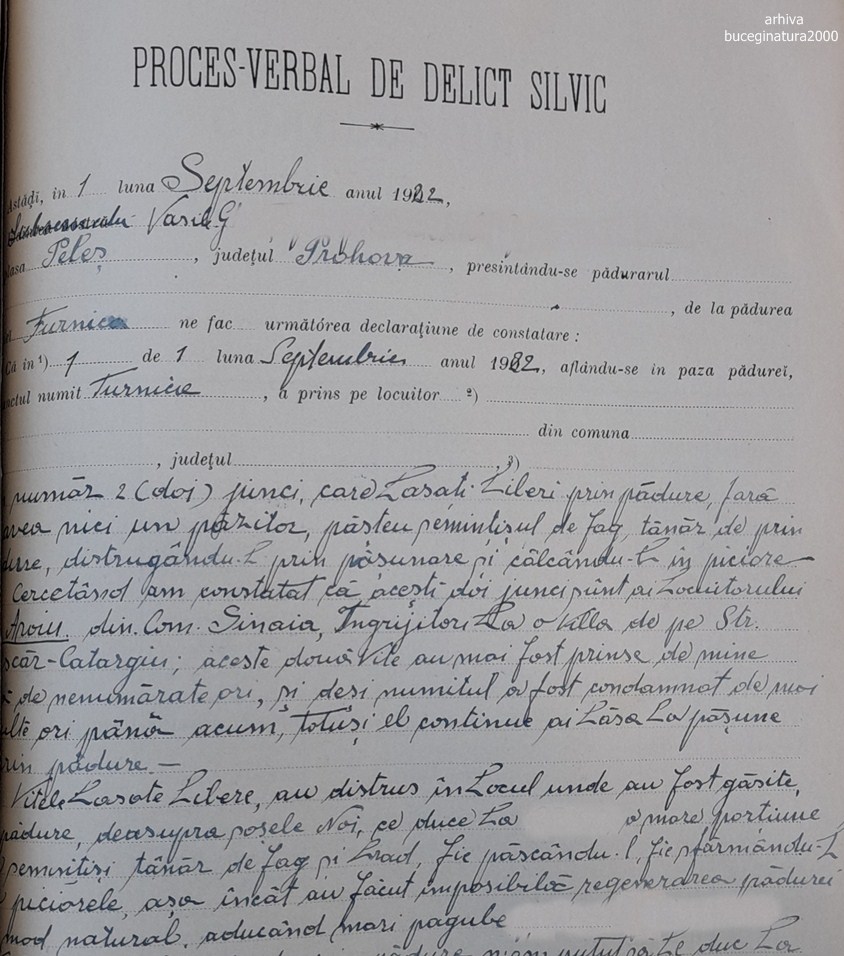 arhiva
buceginatura2000
PROCES-VERBAL DE DELICT SILVIC
Astăḑi, in 1 luna Septembrie anul 1922,
Vasile G
lasa Peleș, județul Prahova, presintându-se pădurarul
, de la pădurea
Furnica ne fac următórea declarațiune de constatare :
Că in ¹) 1 de 1 luna Septembrie anul 1922, aflându-se in paza pădurei,
nctul numit Furnica, a prins pe locuitor ²)
din comuna
, județul ³)
număr 2 (doi) junci, care Lasați Liberi prin pădure, fară
avea nici un păzitor, pășteu semintișul de fag, tânăr de prin
distrugându-L prin pășunare și călcându-L in piciore
Cercetând am constatat că acești doi junci sunt ai Locuitorului
din Com. Sinaia, Ingrijitor La o Villa de pe Str.
scăr-Catargiu; aceste două Vite au mai fost prinse de mine
de nenumărate ori, și desi numitul a fost condamnat de mai
ulte ori până acum, totuși el continue ai Lăsa La pășune
rin pădure. —
Vitele Lasate Libere, au distrus în Locul unde au fost găsite,
pădure, deasupra șoselei Noi, ce duce La o mare porțiune
semintis tânăr de fag și brad, fie păscându-l, fie sfărmându-L
piciórele, așa încât au făcut imposibilă regenerarea pădurei
mod natural, aducând mari pagube
pădure n'am putut să Le duc La